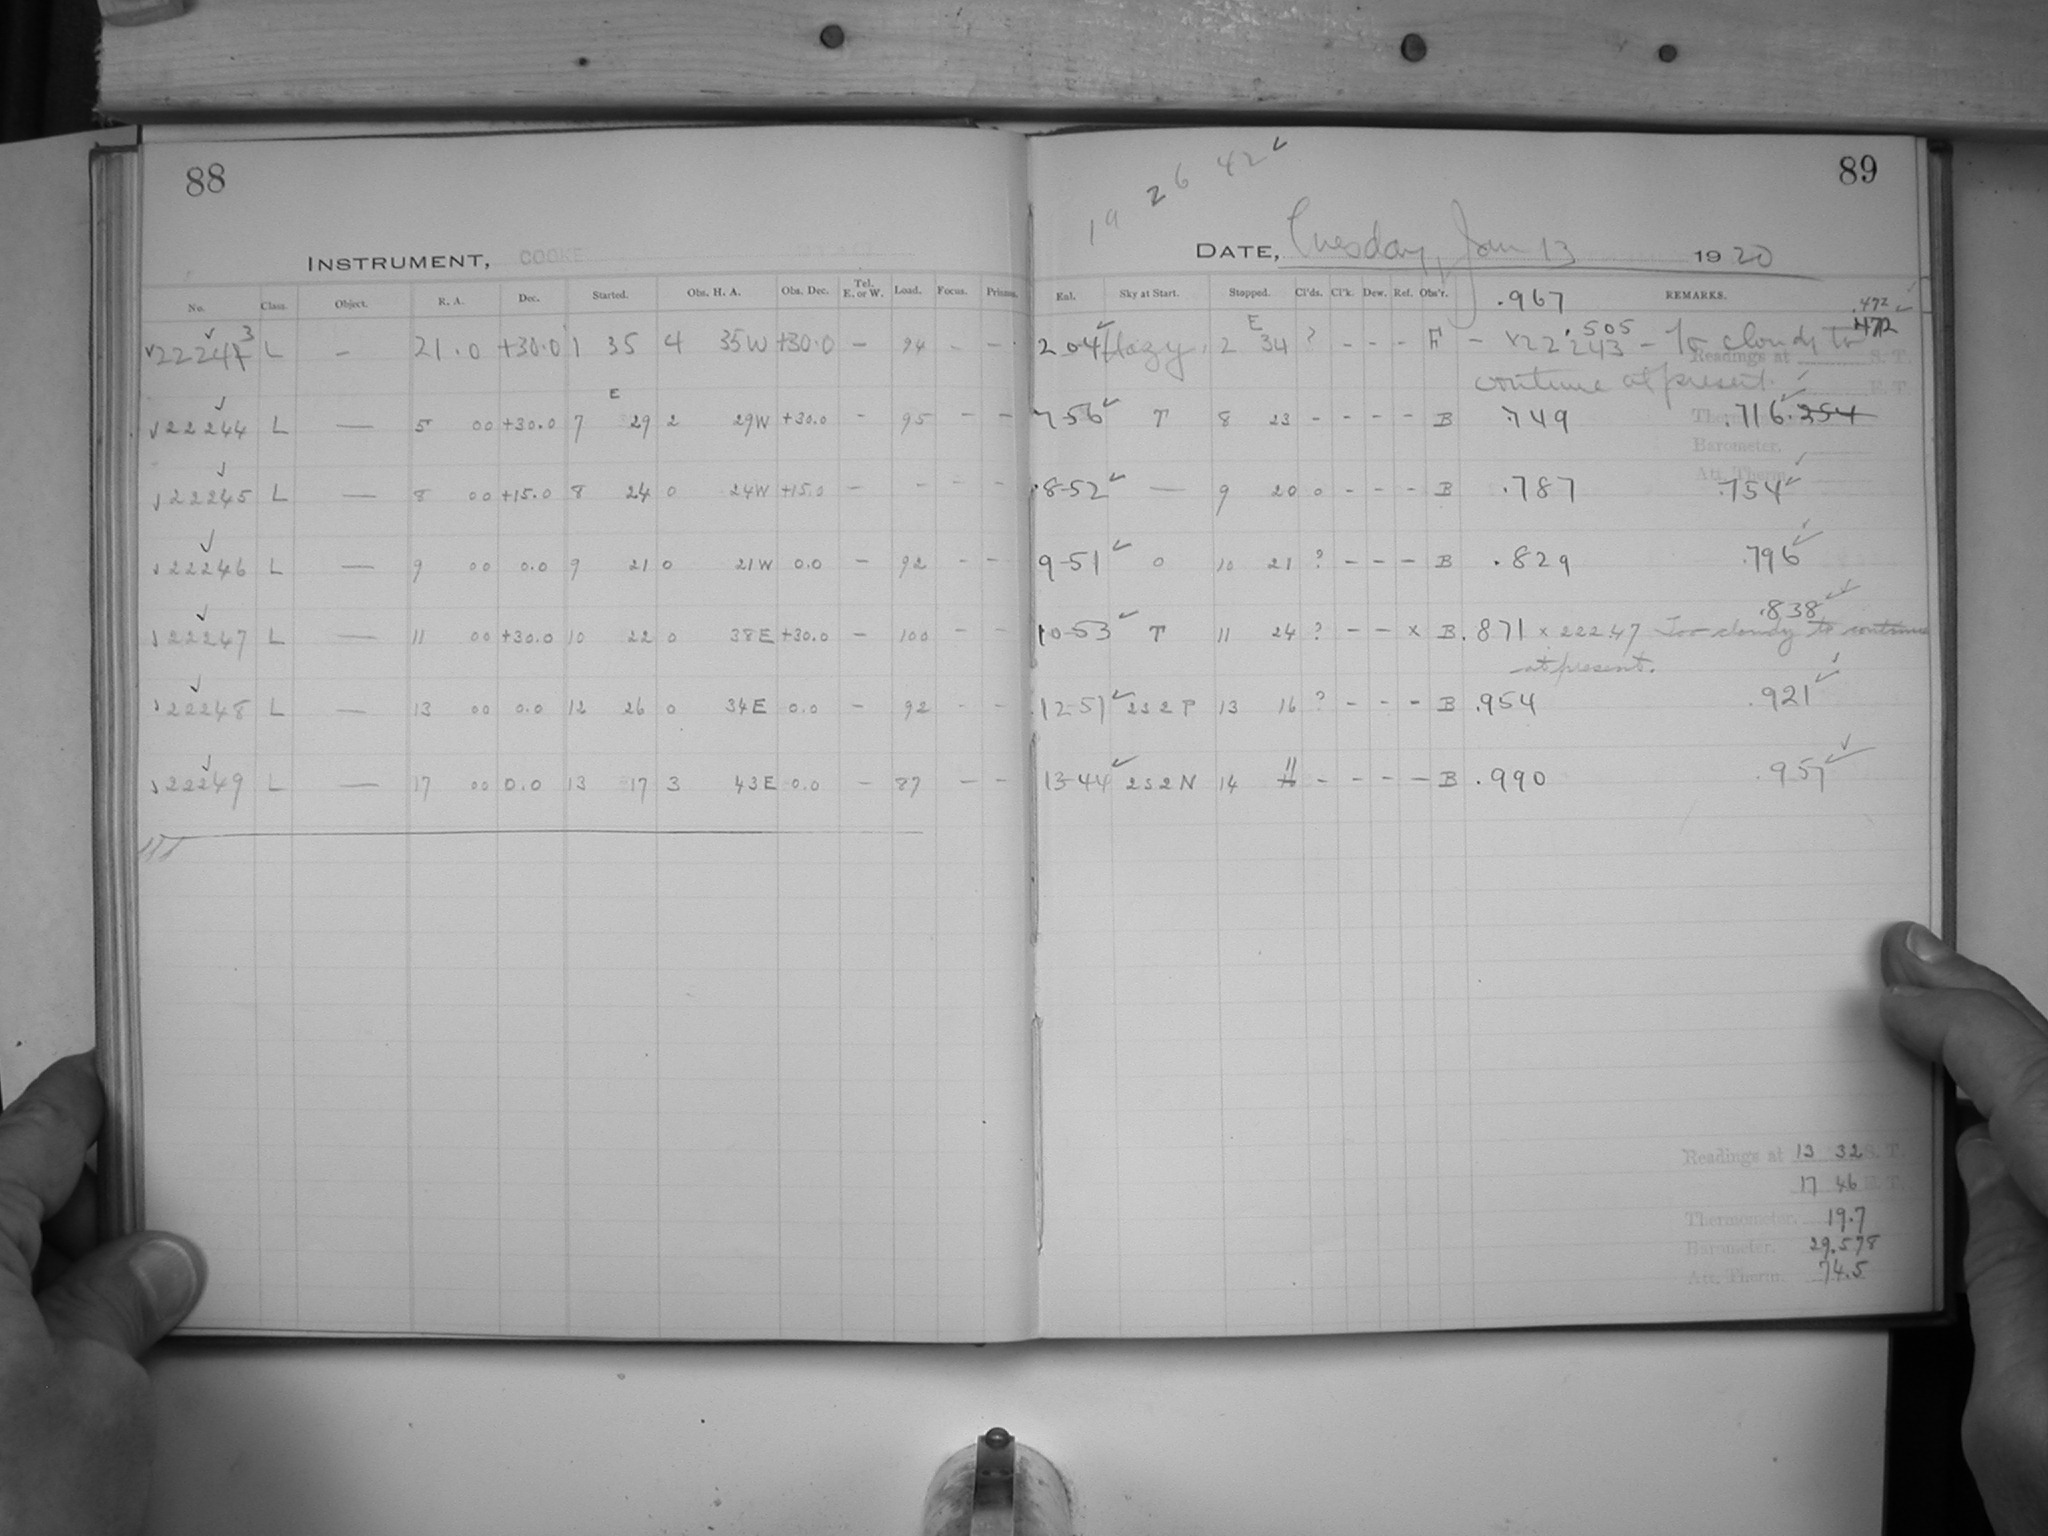 88
INSTRUMENT, COOKE
No. Class. Object. R. A. Dec. Started. Obs. H. A. Obs. Dec. Tel. E. or W. Load. Focus. Prisms.
3
22247 L - 21.0 +30.0 1 35 4 35W +30.0 - 94 - -
E
22244 L — 5 00 +30.0 7 29 2 29W +30.0 - 95 - -
22245 L — 8 00 +15.0 8 24 0 24W +15.0 - - - -
22246 L — 9 00 0.0 9 21 0 21W 0.0 - 92 - -
22247 L — 11 00 +30.0 10 22 0 38E +30.0 - 100 - -
22248 L — 13 00 0.0 12 26 0 34E 0.0 - 92 - -
22249 L — 17 00 0.0 13 17 3 43E 0.0 - 87 - -
89
19 26 42
DATE, Tuesday, Jan 13 1920
Enl. Sky at Start. Stopped. Cl'ds. Cl'k. Dew. Ref. Obs'r. REMARKS.
.967
.472
.505 472
E
2 04 Hazy. 2 34 ? - - - F - x22243 - Too cloudy to
continue at present.
7-56 T 8 23 - - - - B .749 .716 .254
8-52 — 9 20 0 - - - B .787 .754
9-51 0 10 21 ? - - - B .829 .796
.838
10-53 T 11 24 ? - - x B .871 x 22247 Too cloudy to continue
at present.
12-51 2s2P 13 16 ? - - - B .954 .921
13-44 2s2N 14 11 - - - - B .990 .957
Readings at S. T.
E. T.
Barometer.
Att. Therm.
Readings at 13 32 S. T.
17 46 E. T.
Thermometer. 19.7
Barometer. 29.578
Att. Therm. 74.5